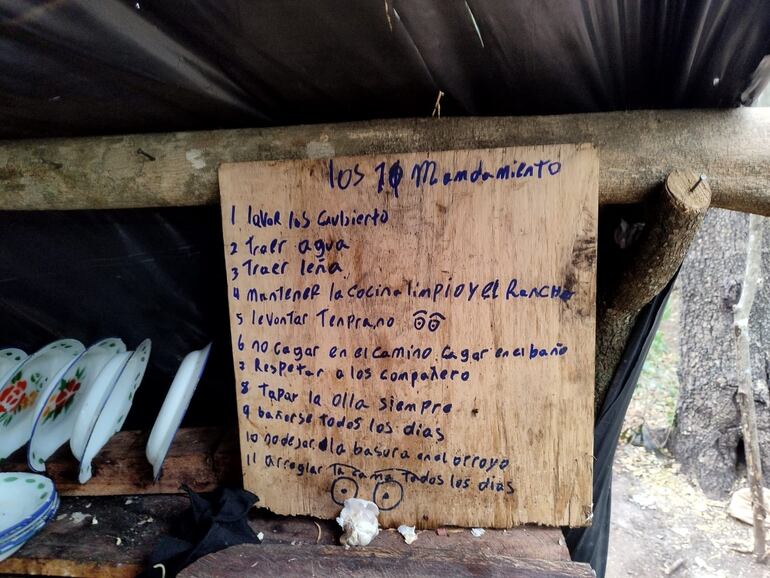 los 10 Mamdamiento
1 lavar los Caubierto
2 traer agua
3 traer leña
4 mantener la cocina limpio y el Rancho
5 levontar Tenprano
6 no cagar en el camino. cagar en el baño
7 Respetar a los compañero
8 Tapar la olla siempre
9 bañarse todos los dias
10 no dejar la basura en el arroyo
11 arroglar Tu cama Todos los dias